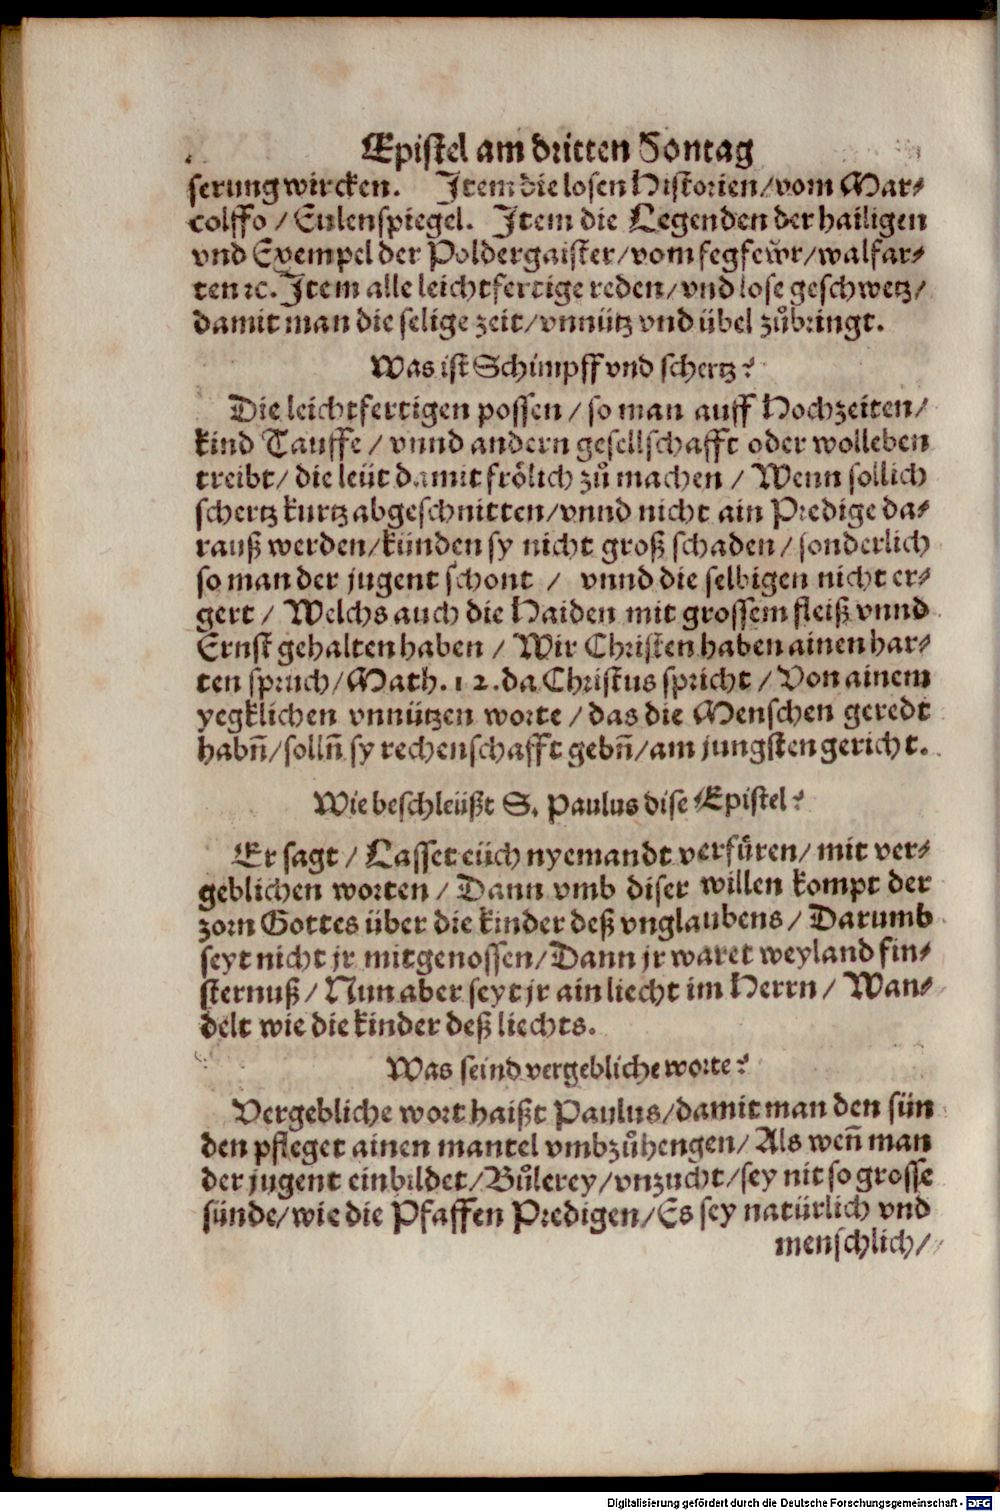 Epistel am dritten Sontag
serung wircken. Item die losen Historien/ vom Mar⸗
colffo / Eulenspiegel. Item die Legenden der hailigen
vnd Exempel der Poldergaister/ vom fegfewr/ walfar⸗
ten ꝛc. Item alle leichtfertige reden/ vnd lose geschwetz/
damit man die selige zeit/ vnnütz vnd übel zůbringt.
Was ist Schimpff vnd schertz?
Die leichtfertigen possen / so man auff Hochzeiten/
kind Tauffe / vnnd andern gesellschafft oder wolleben
treibt/ die leüt damit frölich zů machen / Wenn sollich
schertz kurtz abgeschnitten/ vnnd nicht ain Predige da⸗
rauß werden/ künden sy nicht groß schaden / sonderlich
so man der jugent schont / vnnd die selbigen nicht er⸗
gert / Welchs auch die Haiden mit grossem fleiß vnnd
Ernst gehalten haben / Wir Christen haben ainen har⸗
ten spruch/ Math. 12. da Christus spricht / Von ainem
yegklichen vnnützen worte / das die Menschen geredt
habñ/ sollñ sy rechenschafft gebñ/ am jungsten gericht.
Wie beschleüßt S. Paulus dise Epistel?
Er sagt / Lasset eüch nyemandt verfüren/ mit ver⸗
geblichen worten / Dann vmb diser willen kompt der
zorn Gottes über die kinder deß vnglaubens / Darumb
seyt nicht jr mitgenossen/ Dann jr waret weyland fin⸗
sternuß / Nun aber seyt jr ain liecht im Herrn / Wan⸗
delt wie die kinder deß liechts.
Was seind vergebliche worte?
Vergebliche wort haißt Paulus/ damit man den sün
den pfleget ainen mantel vmbzůhengen/ Als weñ man
der jugent einbildet/ Bůlerey/ vnzucht/ sey nit so grosse
sünde/ wie die Pfaffen Predigen/ Es sey natürlich vnd
menschlich/
Digitalisierung gefördert durch die Deutsche Forschungsgemeinschaft - DFG